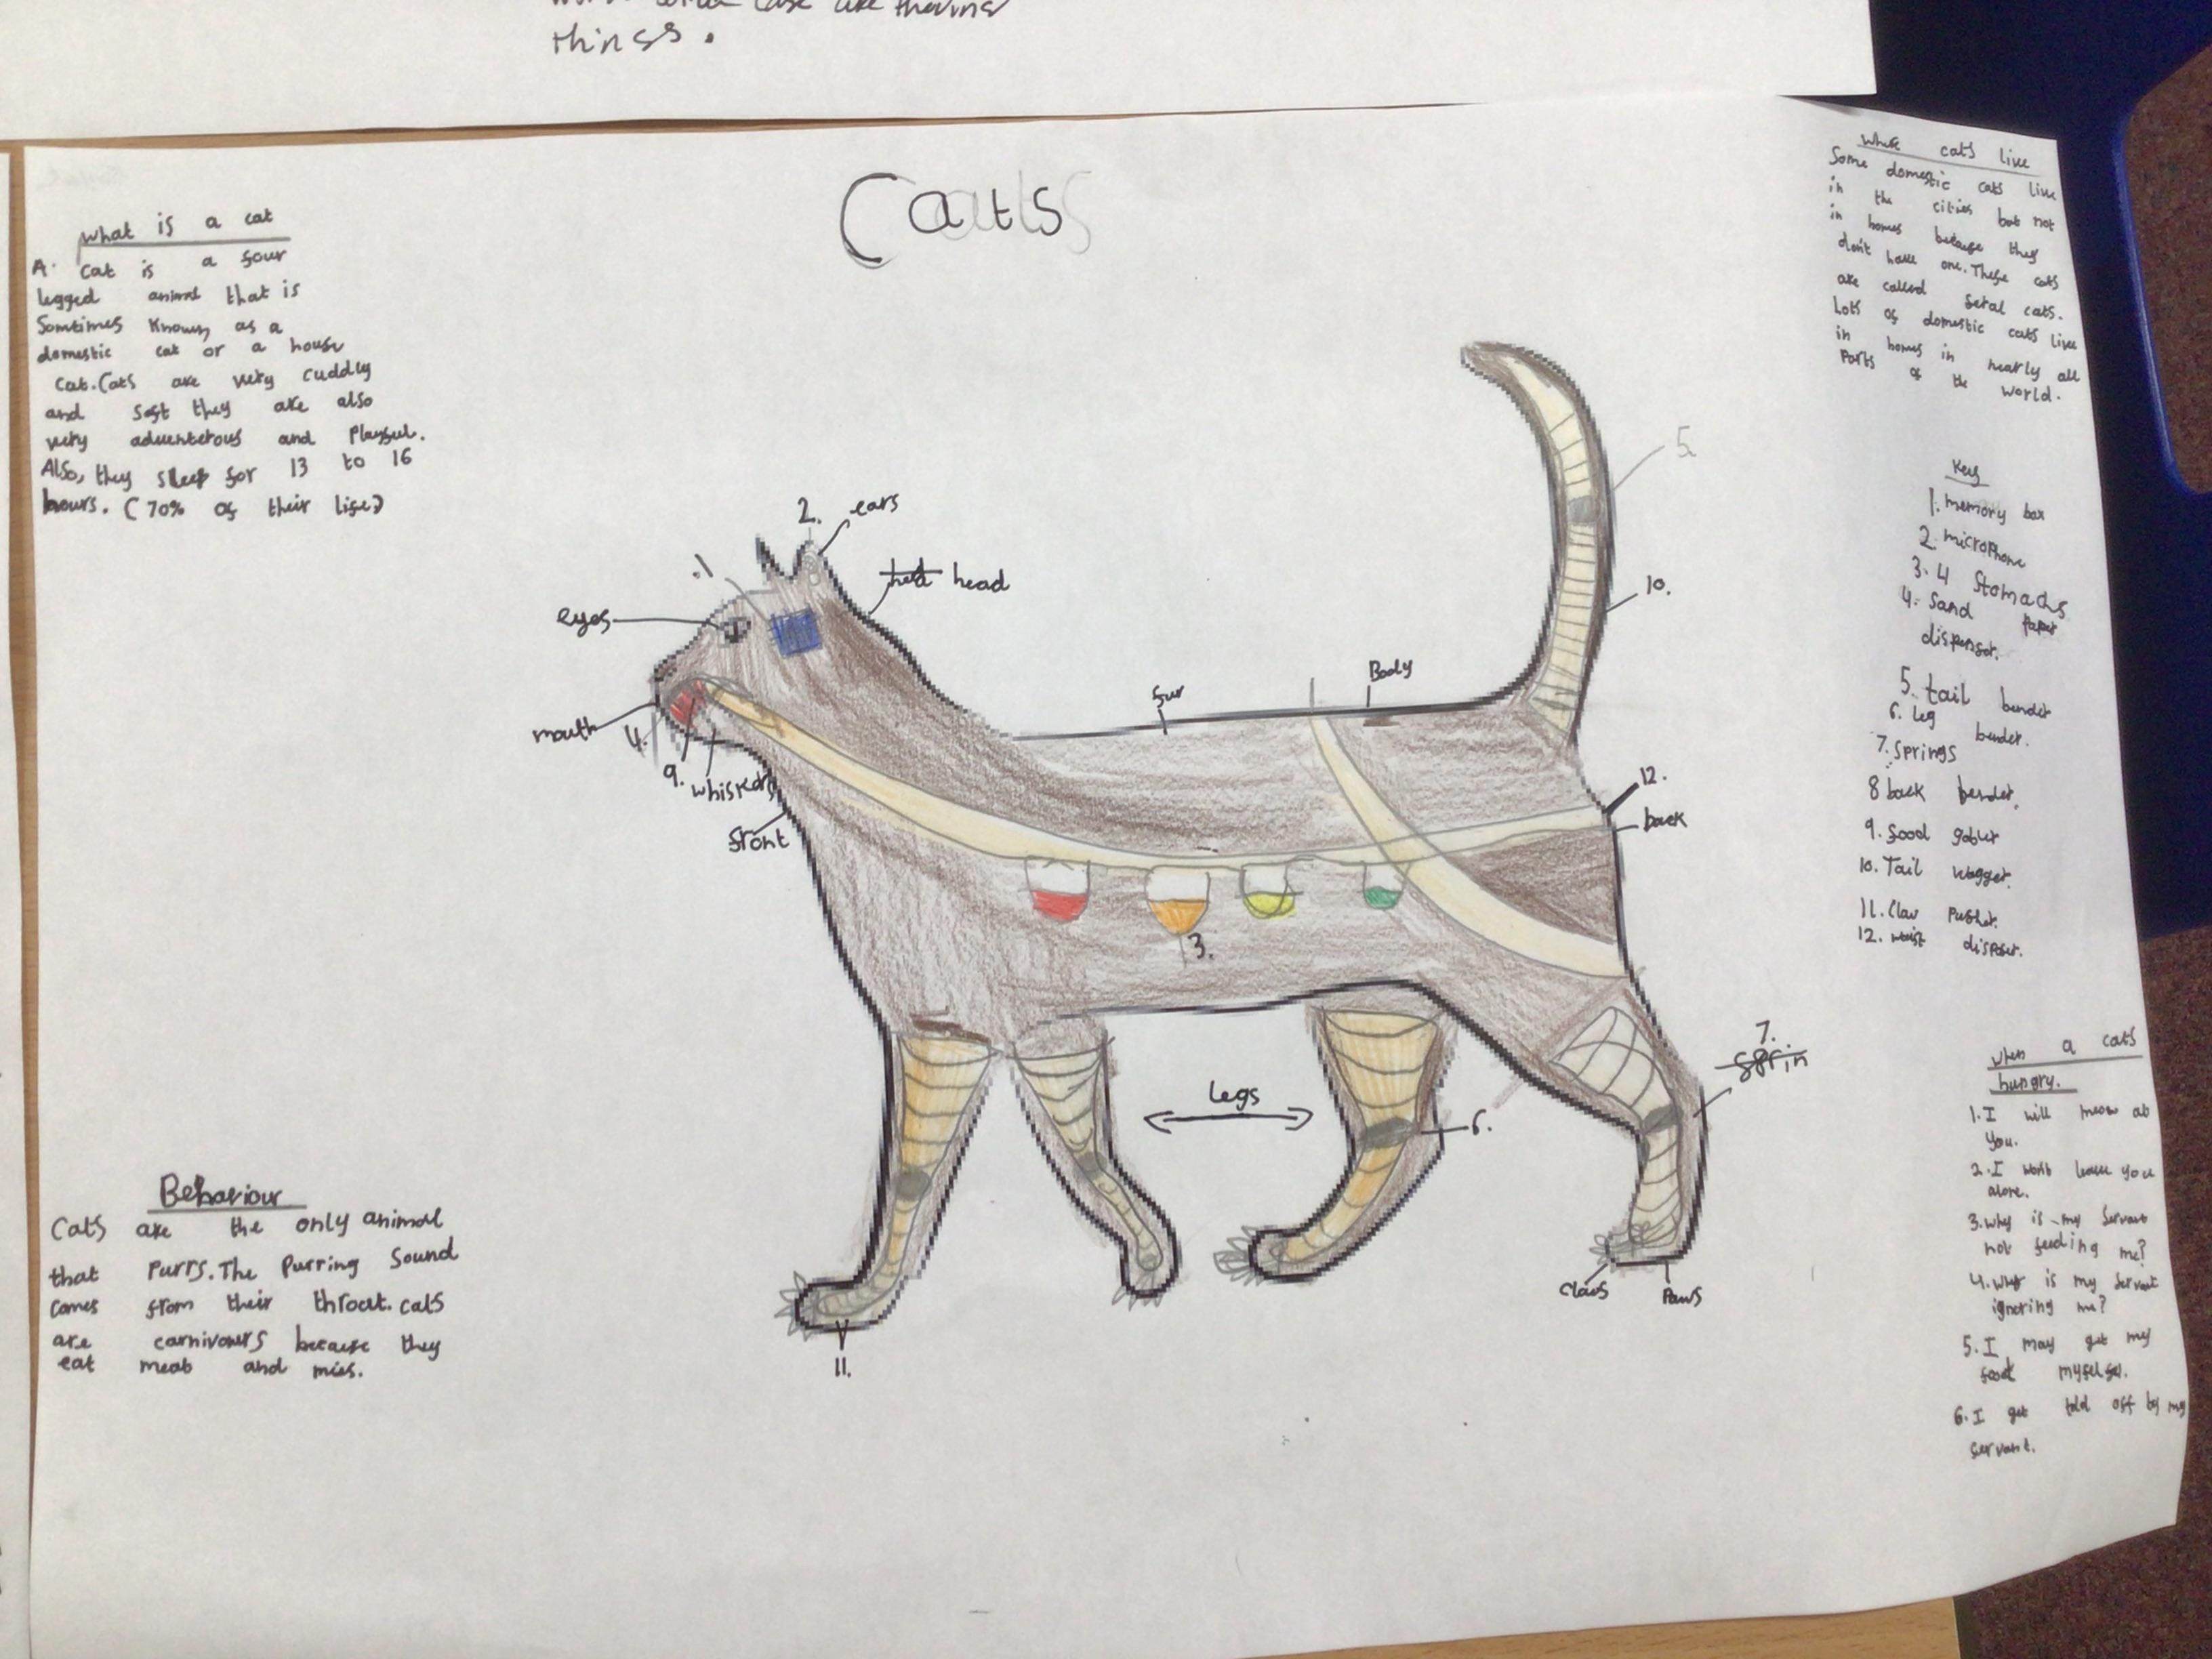 things.
Cats
what is a cat
A cat is a four
legged animal that is
Sometimes Known as a
domestic cat or a house
cat. Cats are very cuddly
and soft they are also
very adventerous and Playful.
Also, they sleep for 13 to 16
hours. (70% of their life)
Behaviour
Cats are the only animal
that Purrs. The Purring Sound
comes from their throat. cats
are carnivowrs because they
eat meat and mies.
2. ears
head
.1
eyes
mouth
4.
9. whiskers
front
fur
Body
5.
10.
12.
back
3.
legs
6.
7.
sprin
claws
Paws
11.
where cats live
Some domestic cats live
in the cities but not
in homes because they
don't have one. These cats
are called feral cats.
Lots of domestic cats live
in homes in nearly all
Parts of the world.
Key
1. memory box
2. microphone
3. 4 Stomachs
4. Sand Paper
dispensor.
5. tail bender
6. leg bender.
7. Springs
8 back bender.
9. food gobler
10. Tail wagger.
11. Claw Pusher.
12. disposer.
when a cats
hungry.
1. I will meow at
you.
2. I won't leave you
alone.
3. why is my Servant
not feeding me?
4. why is my servant
ignoring me?
5. I may get my
food myfelfe.
6. I get told off by my
servant.